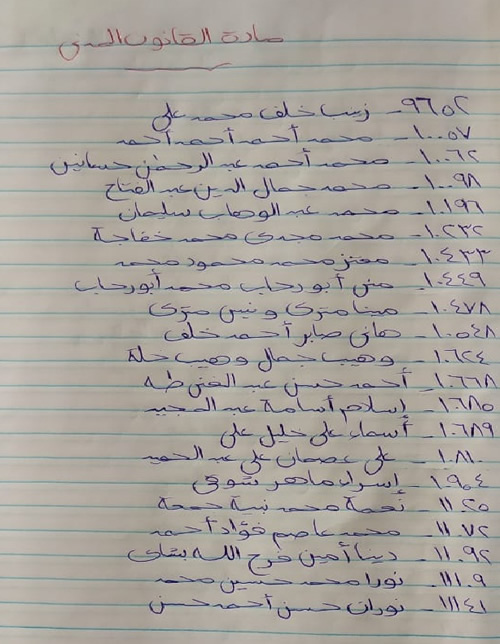 مادة القانون المدنى
٩٦٥٢ - زينب خلف محمد على
١٠٠٥٧ - محمد أحمد أحمد أحمد
١٠٠٦٢ - محمد أحمد عبد الرحمن حسانين
١٠٠٩٨ - محمد جمال الدين عبد الفتاح
١٠١٩٦ - محمد عبد الوهاب سليمان
١٠٢٣٢ - محمد مجدى محمد خفاجة
١٠٤٣٣ - معتز محمد محمود محمد
١٠٤٤٩ - منى أبو رحاب محمد أبو رحاب
١٠٤٧٨ - مينا مترى ونيس مترى
١٠٥٤٨ - هانى صابر أحمد خلف
١٠٦٢٤ - وهيب جمال وهيب حلة
١٠٦٦٨ - أحمد حسن عبد الغنى طه
١٠٦٨٥ - إسلام أسامة عبد المجيد
١٠٦٨٩ - أسماء على خليل على
١٠٨١٠ - على عصمان على عبد الحميد
١٠٩٠٤ - إسراء ماهر شوقى
١١٠٢٥ - نعمة محمد جمعة
١١٠٧٢ - محمد عاصم فؤاد أحمد
١١٠٩٢ - دينا أمين فرج الله بشاى
١١١٠٩ - نورا محمد حسين محمد
١١١٤١ - نوران حسن أحمد حسن